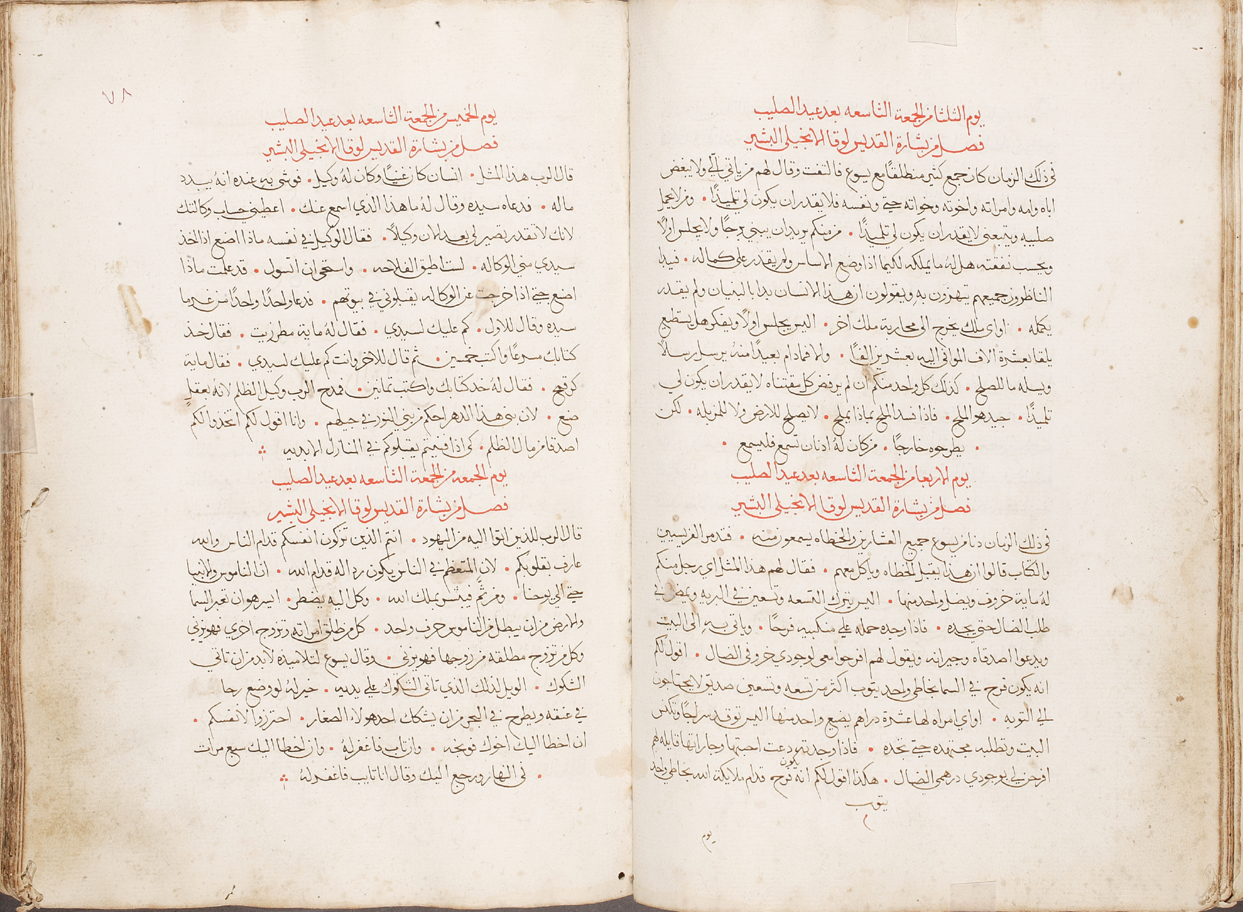 يوم الثلثا من الجمعة التاسعه بعد عيد الصليب
فصل من بشارة القديس لوقا الانجيلي البشير
في ذلك الزمان كان جمع كثير منطلقًا مع يسوع فالتفت وقال لهم من ياتي الي ولا يبغض
اباه وامه وامراته واخوته وخواته حتي ونفسه فلا يقدر ان يكون لي تلميذًا • ومن لا يحمل
صليبه ويتبعني لا يقدر ان يكون لي تلميذًا • من منكم يريد ان يبني برجًا ولا يجلس اولًا
ويحسب نفقته هل له ما يملكه لكيما اذا وضع الاساس ولم يقدر علي كماله • فيبدا
الناظرون جميعهم يتهزون به ويقولون ان هذا الانسان بدا بالبنيان ولم يقدر
يكمله • او اي ملك يخرج الي محاربة ملك اخر • اليس يجلس اولًا ويفكر هل يستطيع
يلقا بعشرة الاف الموافي اليه بعشرين الفًا • والا فما دام بعيدًا منه يرسل رسلًا
ويسله ما للصلح • كذلك كل واحد منكم ان لم يرفض كل مقتناه لا يقدر ان يكون لي
تلميذًا • جيد هو الملح • فاذا فسد الملح بماذا يملح • لا يصلح للارض ولا للمزبله • لكن
• يطرحوه خارجًا • من كان له اذنان تسمع فليسمع •
يوم الاربعا من الجمعة التاسعه بعد عيد الصليب
فصل من بشارة القديس لوقا الانجيلي البشير
في ذلك الزمان دنا من يسوع جميع العشارين والخطاه يسمعون منه • فتذمر الفريسيين
والكتاب قالوا ان هذا يقبل الخطاه وياكل معهم • فقال لهم هذا المثل اي رجل منكم
له ماية خروف ويضل واحد منها • اليس يترك التسعه وتسعين في البريه ويمضي في
طلب الضال حتي يجده • فاذا وجده حمله علي منكبيه فرحًا • وياتي به الي البيت
ويدعوا اصدقاه وجيرانه ويقول لهم افرحوا معي لوجودي خروفي الضال • اقول لكم
انه يكون فرح في السما بخاطي واحد يتوب اكثر من تسعه وتسعين صديق لا يحتاجون
الي التوبه • او اي امراه لها عشرة دراهم يضيع واحد منها اليس توقد سراجًا وتكنس
البيت وتطلبه مجتهده حتي تجده • فاذا وجدته دعت احبتها وجاراتها قايله لهم
افرحن لي بوجودي درهمي الضال • هكذا اقول لكم انه يكون فرح قدام ملايكة الله بخاطي واحد
يتوب
يوم
٧٨
يوم الخميس من الجمعة التاسعه بعد عيد الصليب
فصل من بشارة القديس لوقا الانجيلي البشير
قال الرب هذا المثل • انسان كان غنيًا وكان له وكيل • فوشي به عنده انه يبدد
ماله • فدعاه سيده وقال له ما هذا الذي اسمع عنك • اعطني حساب وكالتك
لانك لا تقدر تصير لي بعد الان وكيلًا • فقال الوكيل في نفسه ماذا اصنع اذا اخذ
سيدي مني الوكاله • لست اطيق الفلاحه • واستحي ان اتسول • قد علمت ماذا
اصنع حتي اذا خرجت عن الوكاله يقبلوني في بيوتهم • فدعا واحدًا واحدًا من غرما
سيده وقال للاول • كم عليك لسيدي • فقال له ماية مطر زيت • فقال خذ
كتابك مسرعًا واكتب خمسين • ثم قال للاخر وانت كم عليك لسيدي • فقال ماية
كر قمح • فقال له خد كتابك واكتب تمانين • فمدح الرب وكيل الظلم لانه بعقل
صنع • لان بني هذا الدهر احكم من بني النور في جيلهم • وانا اقول لكم اتخذوا لكم
اصدقا من مال الظلم • كي اذا فنيتم يقبلوكم في المنازل الابديه
يوم الجمعه من الجمعة التاسعه بعد عيد الصليب
فصل من بشارة القديس لوقا الانجيلي البشير
قال الرب للذين اتوا اليه من اليهود • انتم الذين تزكون انفسكم قدام الناس والله
عارف بقلوبكم • لان المتعظم في الناس يكون رداله قدام الله • ان الناموس والانبيا
حتي الي يوحنا • ومن ثم فيبشر بملك الله • وكل اليه يضطر • ايسر هو ان تعبر السما
والارض من ان يبطل من الناموس حرف واحد • كل من طلق امراته وتزوج اخري فهو يزني
وكل من تزوج مطلقه من زوجها فهو يزني • وقال يسوع لتلاميذه لابد من ان تاتي
الشكوك • الويل لذلك الذي تاتي الشكوك علي يديه • خير له لو وضع رحا
في عنقه ويطرح في البحر من ان يشكك احد هولاء الصغار • احترزوا لانفسكم •
ان اخطا اليك اخوك فوبخه • وان تاب فاغفر له • وان اخطا اليك سبع مرات
• في النهار ورجع اليك وقال انا تايب فاغفر له